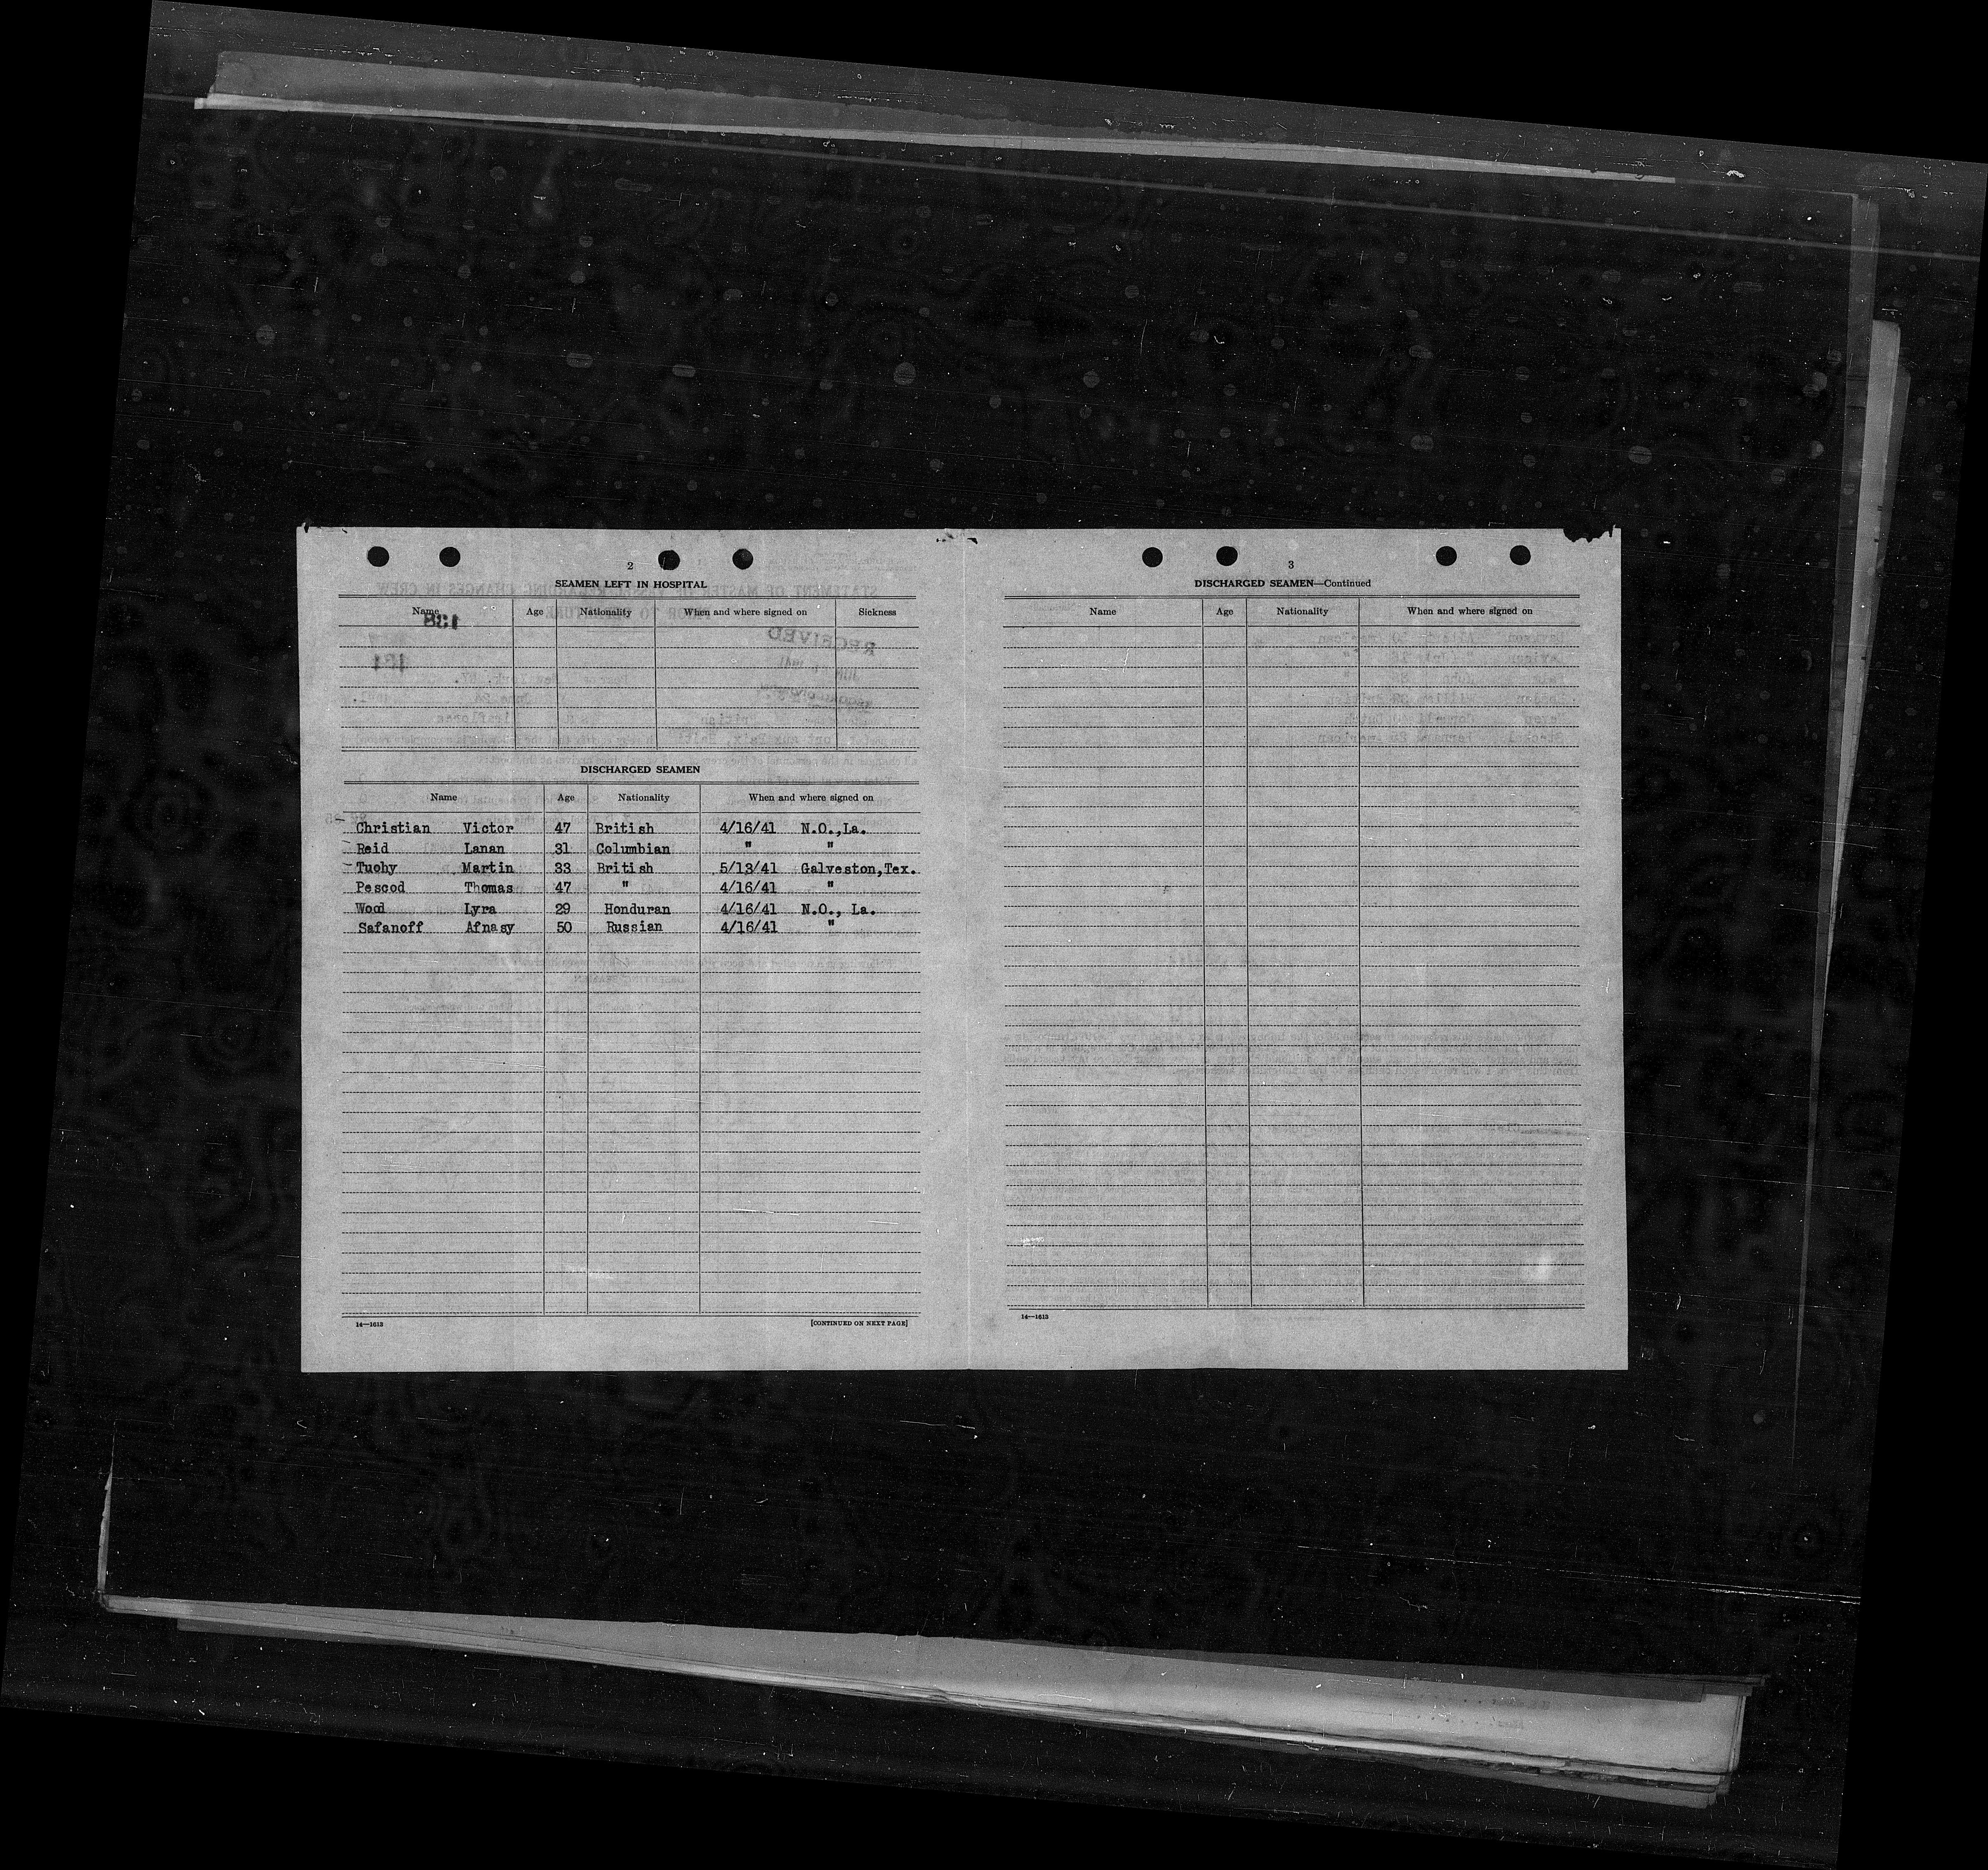 2
SEAMEN LEFT IN HOSPITAL
Name Age Nationality When and where signed on Sickness
DISCHARGED SEAMEN
Name Age Nationality When and where signed on
Christian Victor 47 British 4/16/41 N.O.,La.
Reid Lanan 31 Columbian " "
Tuohy Martin 33 British 5/13/41 Galveston,Tex.
Pescod Thomas 47 " 4/16/41 "
Wood Lyra 29 Honduran 4/16/41 N.O., La.
Safanoff Afnasy 50 Russian 4/16/41 "
14—1613 [CONTINUED ON NEXT PAGE]
3
DISCHARGED SEAMEN—Continued
Name Age Nationality When and where signed on
14—1613